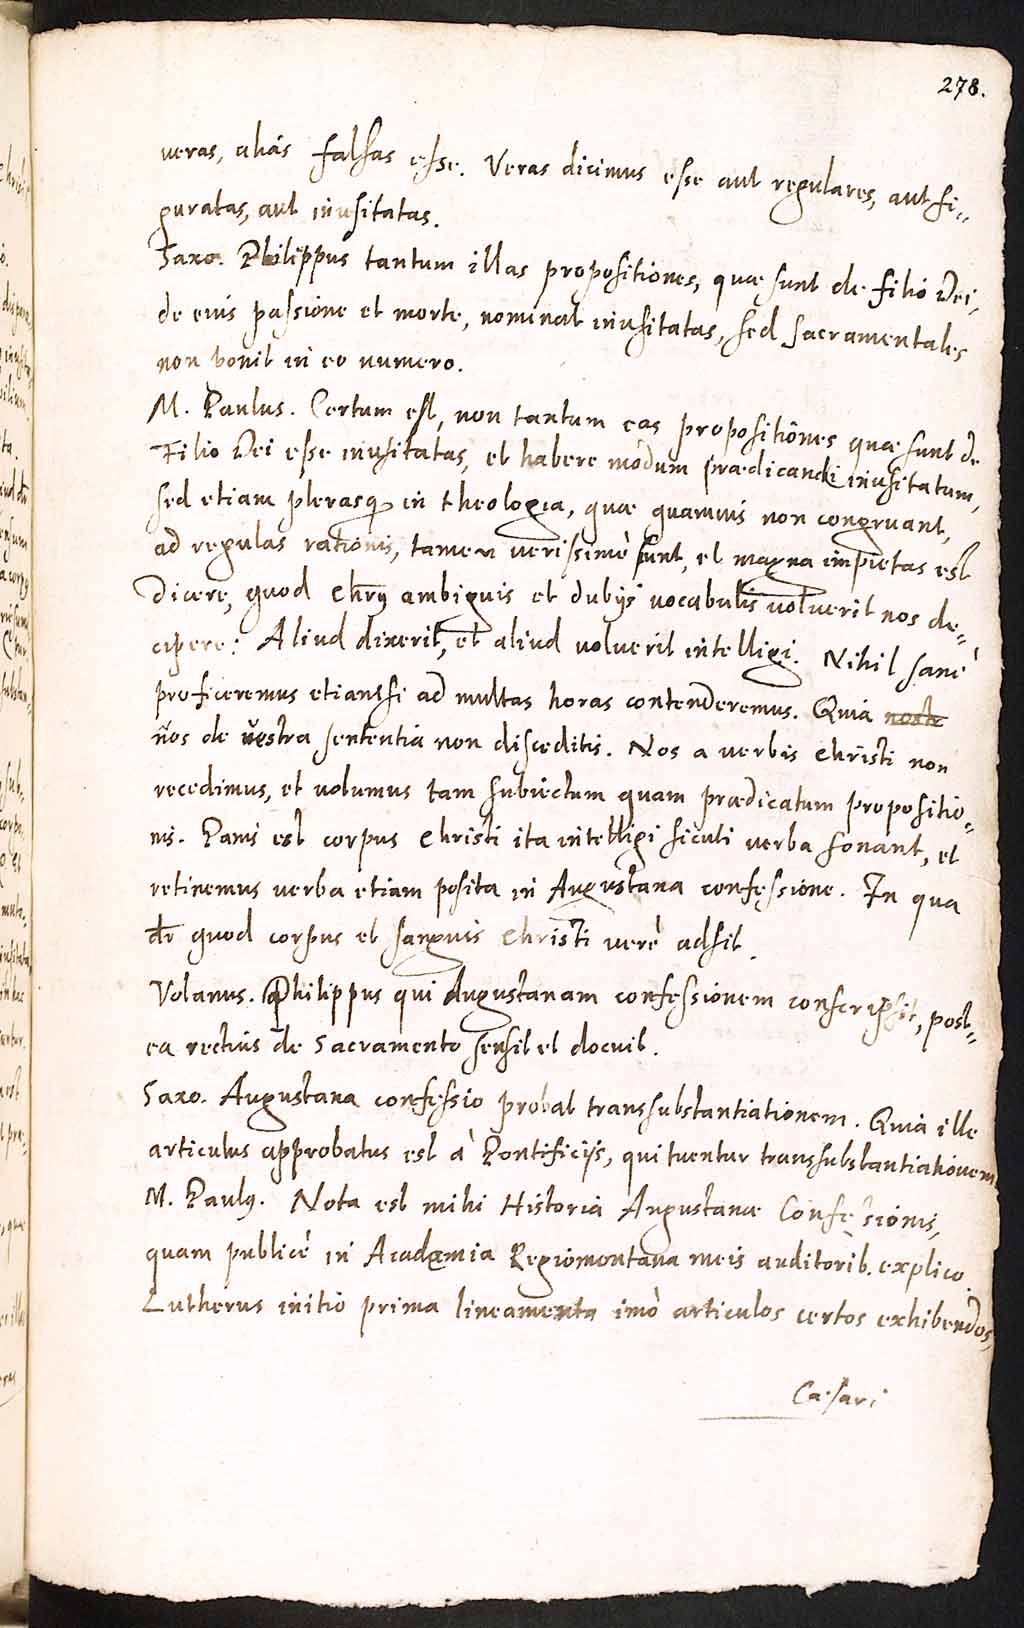 278.
veras, aliàs falsas esse. Veras dicimus esse aut regulares, aut fi-
guratas, aut inusitatas.
Saxo. Philippus tantum illas propositiones, quæ sunt de filio Dei,
de eius passione et morte, nominat inusitatas, sed sacramentales
non ponit in eo numero.
M. Paulus. Certum est, non tantum eas propositiones quæ sunt de
Filio Dei esse inusitatas, et habere modum prædicandi inusitatum,
sed etiam plerasq́ in theologia, quæ quamuis non congruant,
ad regulas rationis, tamen verissimè sunt, et magna impietas est
Dicere, quod Chrūs ambiguis et dubijs vocabulis voluerit nos de-
cipere: Aliud dixerit, et aliud voluerit intelligi. Nihil sanè
proficeremus etiamsi ad multas horas contenderemus. Quia
uos de vestra sententia non disceditis. Nos a verbis Christi non
recedimus, et volumus tam subiectum quam prædicatum propositio-
nis. Panis est corpus Christi ita intelligi sicuti verba sonant, et
retinemus verba etiam posita in Augustana confessione. In qua
dr̄ quod corpus et sanguis Christi verè adsit.
Volanus. Philippus qui Augustanam confessionem conscripsit, post-
ea rectius de Sacramento sensit et docuit.
Saxo. Augustana confessio probat transsubstantiationem. Quia ille
articulus approbatus est à Pontificijs, qui tuentur transsubstantiationem
M. Paulꝯ. Nota est mihi Historia Augustanæ Confessionis,
quam publicè in Academia Regiomontana meis auditorib. explico.
Lutherus initio prima lineamenta imò articulos certos exhibendos,
Cæsari